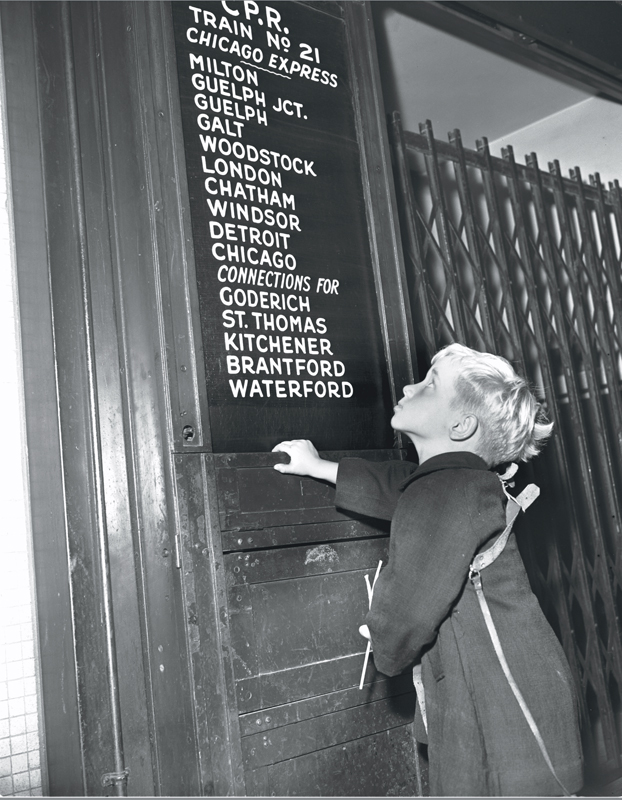 C.P.R.
TRAIN Nº 21
CHICAGO EXPRESS
MILTON
GUELPH JCT.
GUELPH
GALT
WOODSTOCK
LONDON
CHATHAM
WINDSOR
DETROIT
CHICAGO
CONNECTIONS FOR
GODERICH
ST. THOMAS
KITCHENER
BRANTFORD
WATERFORD